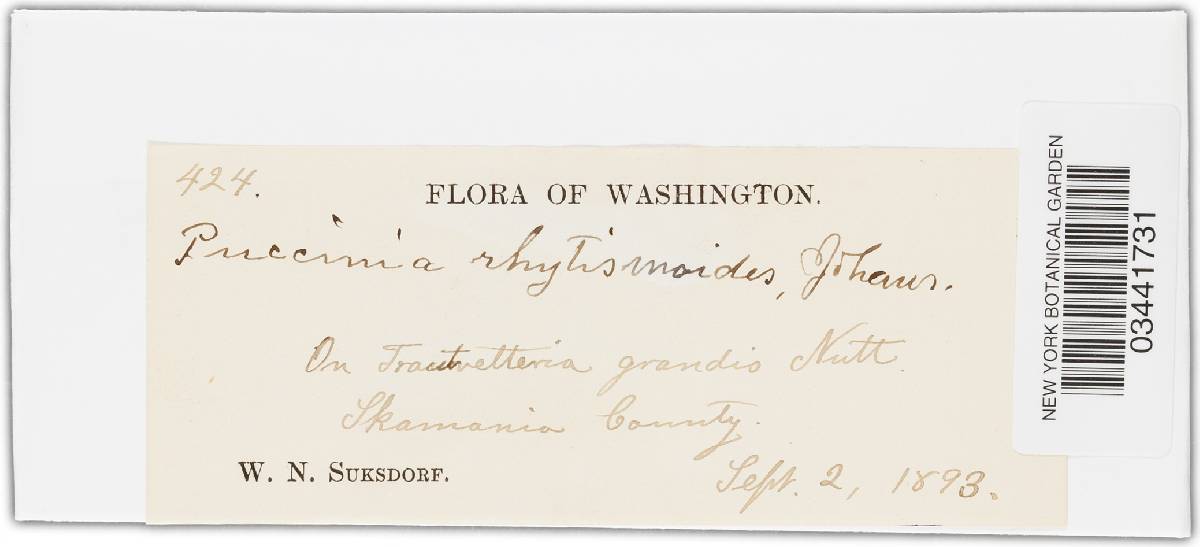 424.
FLORA OF WASHINGTON.
Puccinia rhytismoides, Johans.
On Trautvetteria grandis Nutt.
Skamania County.
W. N. SUKSDORF.
Sept. 2, 1893.
NEW YORK BOTANICAL GARDEN
03441731